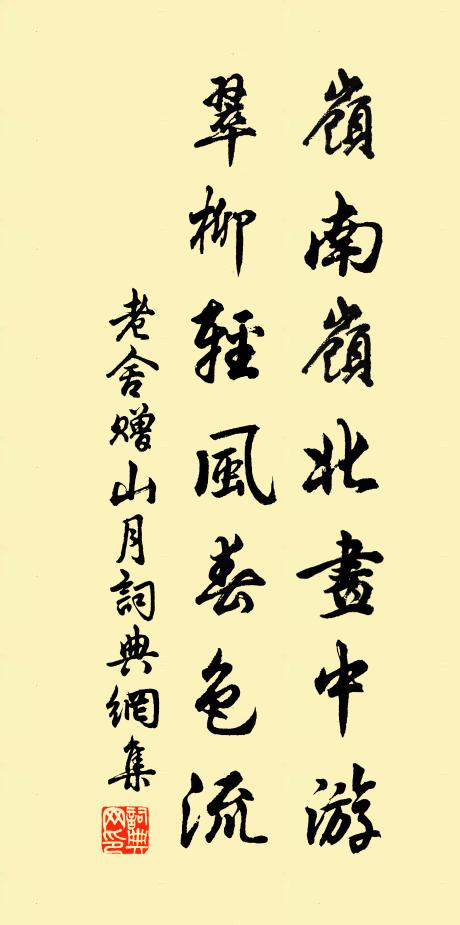 嶺南嶺北畫中游
翠柳輕風春色流
老舍贈山月詞典網集
詞典
网印